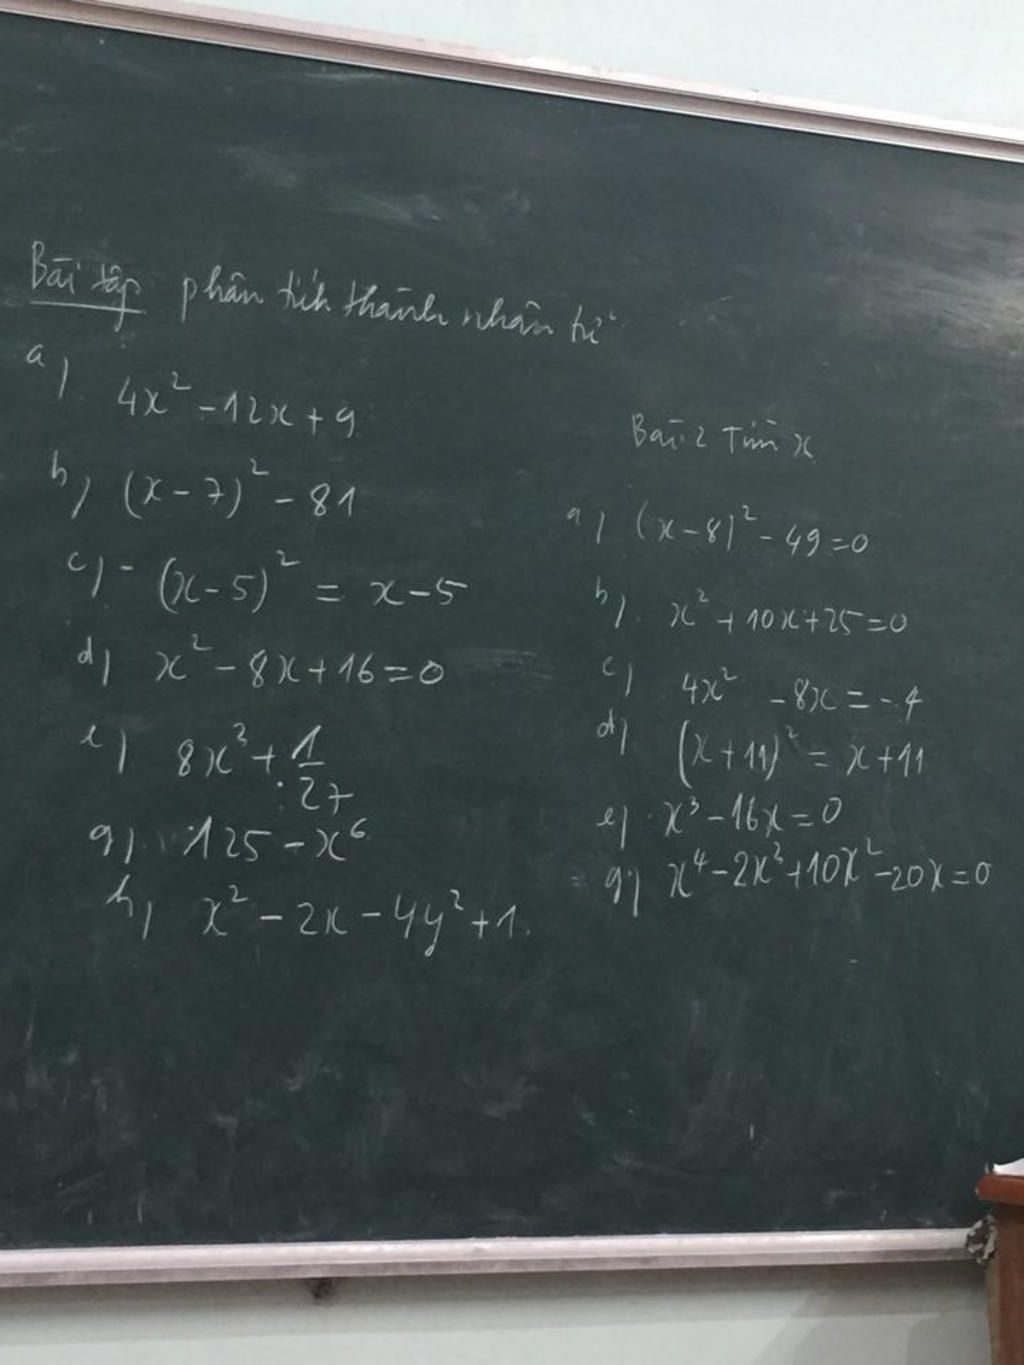 Bài tập phân tích thành nhân tử
a) 4x² - 12x + 9
b) (x - 7)² - 81
c) - (x - 5)² = x - 5
d) x² - 8x + 16 = 0
e) 8x³ + 1/27
g) 125 - x⁶
h) x² - 2x - 4y² + 1
Bài 2 Tìm x
a) (x - 8)² - 49 = 0
b) x² + 10x + 25 = 0
c) 4x² - 8x = -4
d) (x + 11)² = x + 11
e) x³ - 16x = 0
g) x⁴ - 2x³ + 10x² - 20x = 0